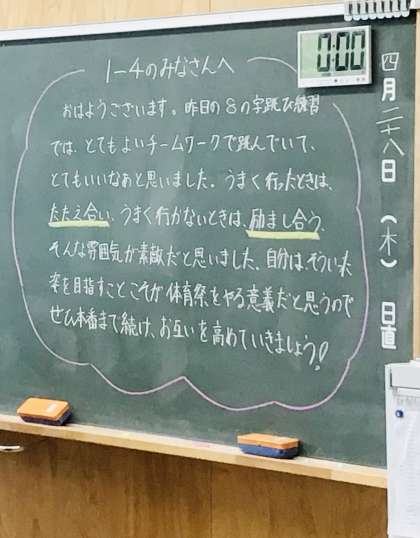 1-4のみなさんへ
おはようございます。昨日の8の字跳び練習
では、とてもよいチームワークで跳んでいて、
とてもいいなあと思いました。うまく行ったときは、
たたえ合い、うまく行かないときは、励まし合う、
そんな雰囲気が素敵だと思いました。自分は、そういった
姿を目指すことこそが体育祭をやる意義だと思うので
ぜひ本番まで続け、お互いを高めていきましょう!
0:00
四月二十八日(木)日直